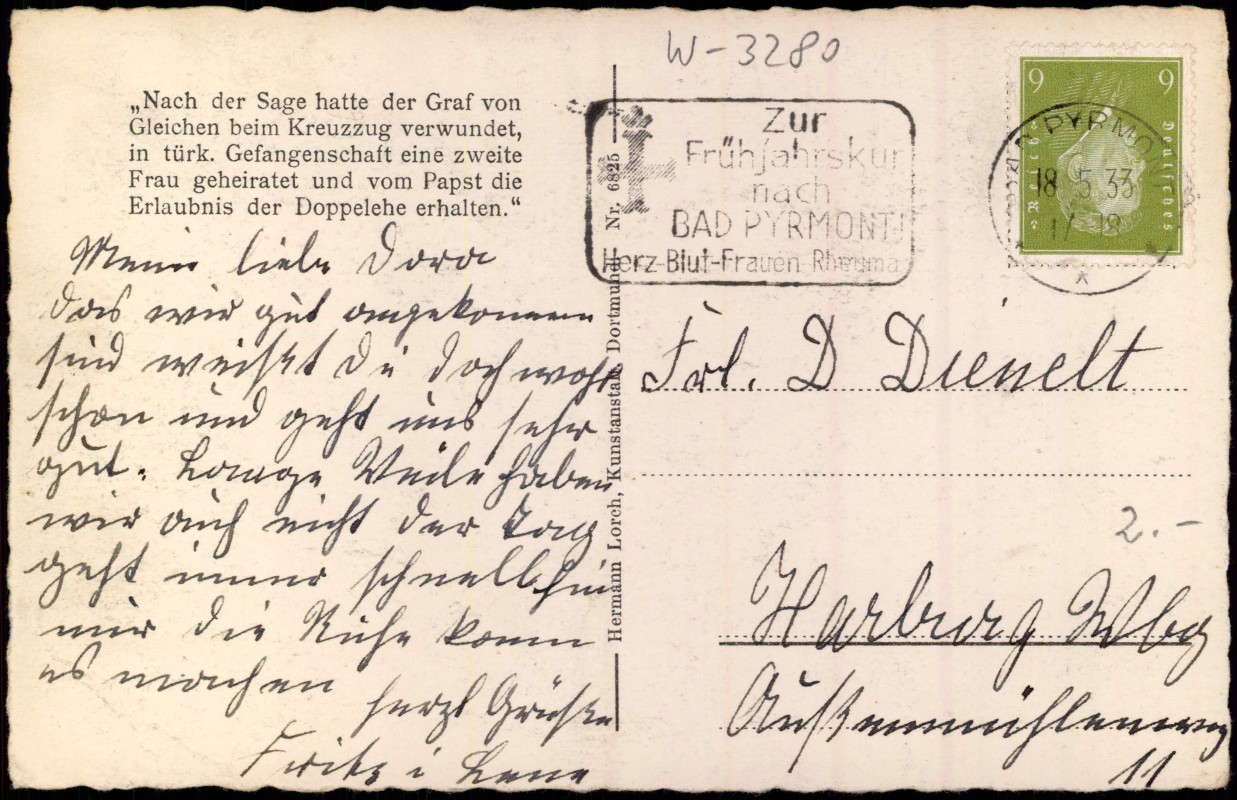 W-3280
„Nach der Sage hatte der Graf von
Gleichen beim Kreuzzug verwundet,
in türk. Gefangenschaft eine zweite
Frau geheiratet und vom Papst die
Erlaubnis der Doppelehe erhalten.“
Meine liebe Dora
das wir gut angekommen
sind weißt du doch wohl
schon und geht uns sehr
gut. Lange Weile haben
wir auch nicht der Tag
geht immer schnell hin
nur die Ruhe kann
es machen
herzl Grüße
Fritz i Lene
Hermann Lorch, Kunstanstalt, Dortmund Nr. 6825
Zur
Frühjahrskur
nach
BAD PYRMONT!
Herz-Blut-Frauen-Rheuma
9 9
Deutsches
Reich
BAD PYRMONT
18.5.33
17-18
Frl. D Dienelt
2.-
Harburg Wbg
Außenmühlenweg
11